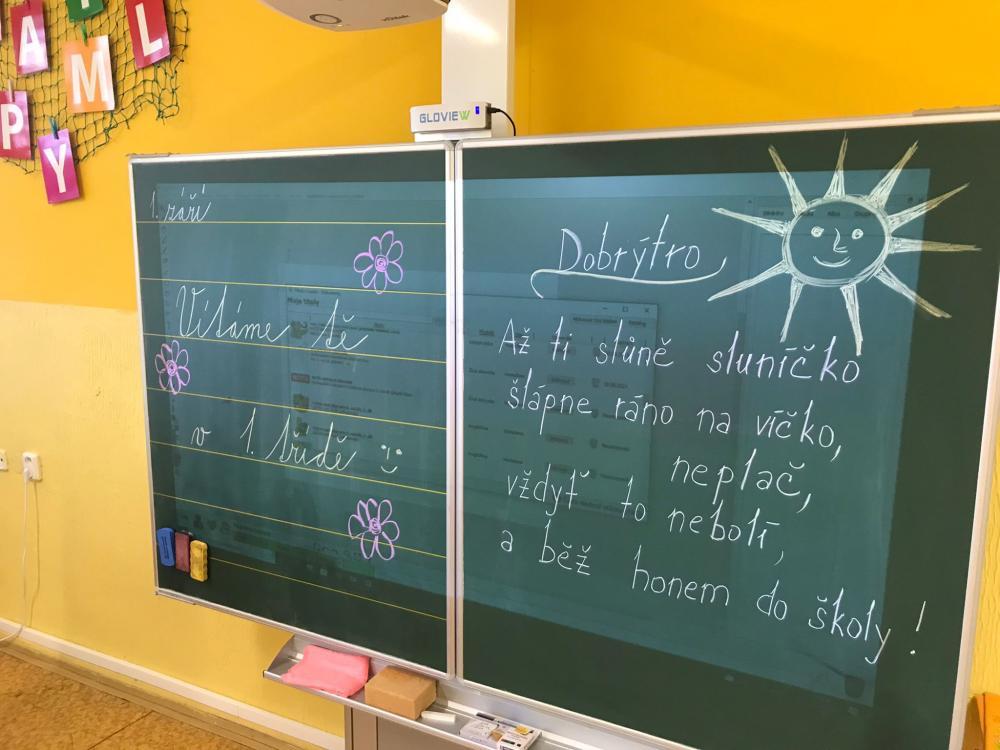 A
L
M
P
Y
GLOVIEW
1. září
Vítáme tě
v 1. třídě
Dobrýtro
Až ti slůně sluníčko
šlápne ráno na víčko,
neplač,
vždyť to nebolí,
a běž honem do školy!
Moje tituly